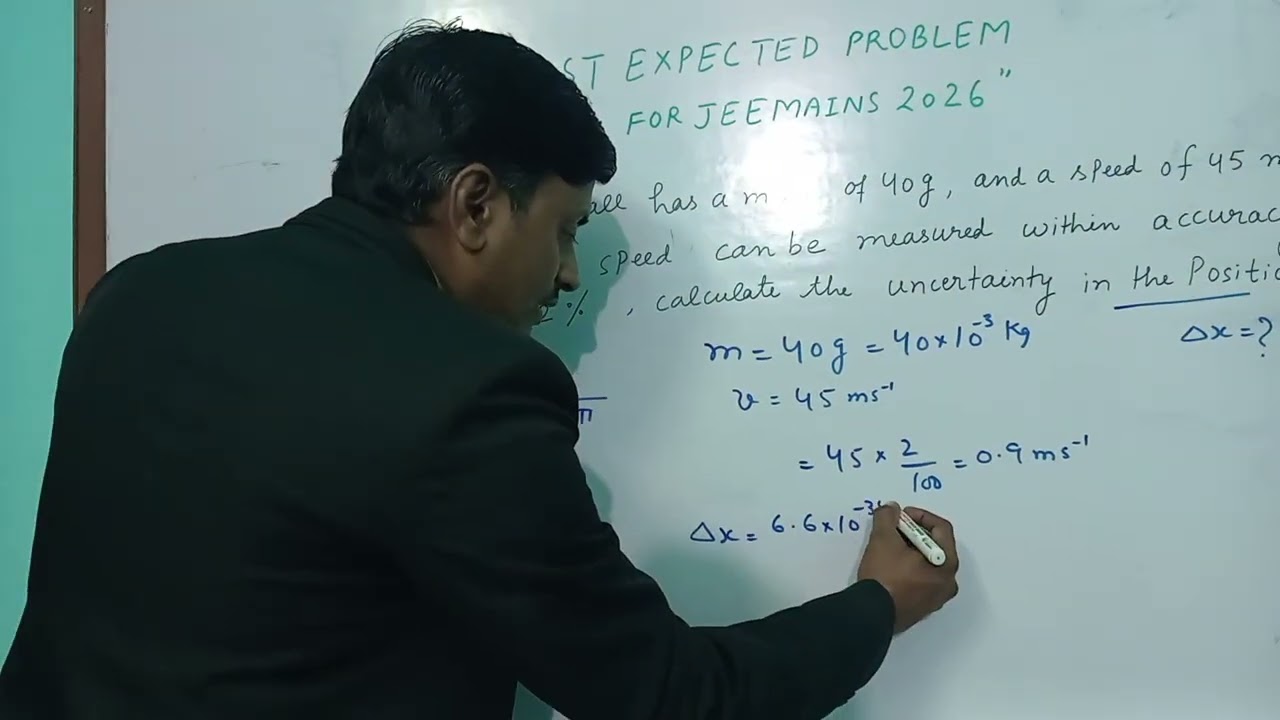 ST EXPECTED PROBLEM
FOR JEE MAINS 2026"
all has a m of 40g, and a speed of 45 m
speed can be measured within accurac
2%, calculate the uncertainty in the Positio
m = 40g = 40×10⁻³ Kg
Δx = ?
π
v = 45 ms⁻¹
= 45 × 2/100 = 0.9 ms⁻¹
Δx = 6.6×10⁻³